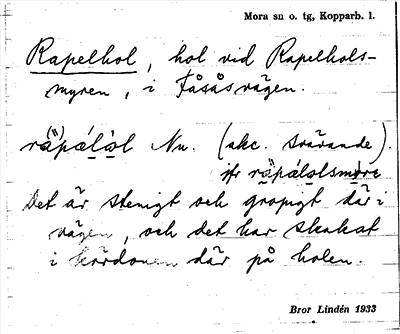 Mora sn o. tg, Kopparb. l.
Rapelhol, hol vid Rapelhols-
myren, i Fåsåsvägen.
rä̤pálo̤l Nu. (akc. svävande).
jfr rä̤pálolsmöre
Det är stenigt och gropigt där i
vägen, och det har skakat
i kördonen där på holen.
Bror Lindén 1933